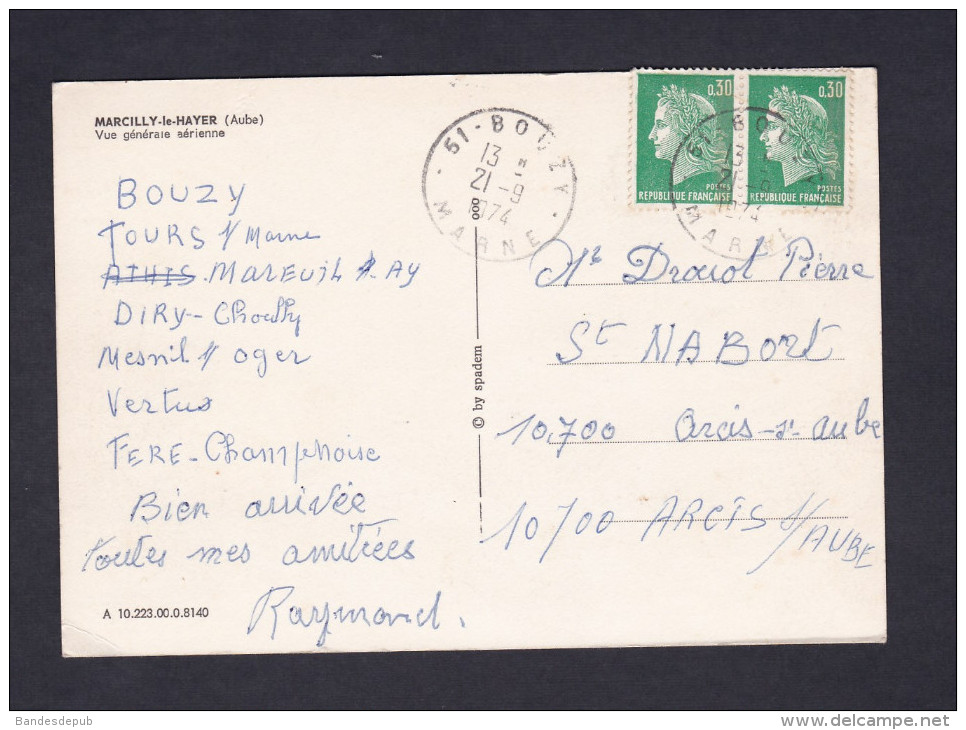 MARCILLY-le-HAYER (Aube)
Vue générale aérienne
BOUZY
TOURS s/ Marne
ATHIS. MAREUIL s/ AY
DIRY - Chouilly
Mesnil s/ oger
Vertus
FERE-Champenoise
Bien arrivée
toutes mes amitiées
Raymond.
A 10.223.00.0.8140
© by spadem
000
51 - BOUZY
13 H
21 - 9
1974
MARNE
0,30
POSTES
REPUBLIQUE FRANÇAISE
0,30
POSTES
REPUBLIQUE FRANÇAISE
51 - BOU
1974
MARNE
Mr Drouot Pierre
St NABORt
10,700 Arcis-s-aube
10700 ARCIS s/AUBE
Bandesdepub
www.delcampe.net